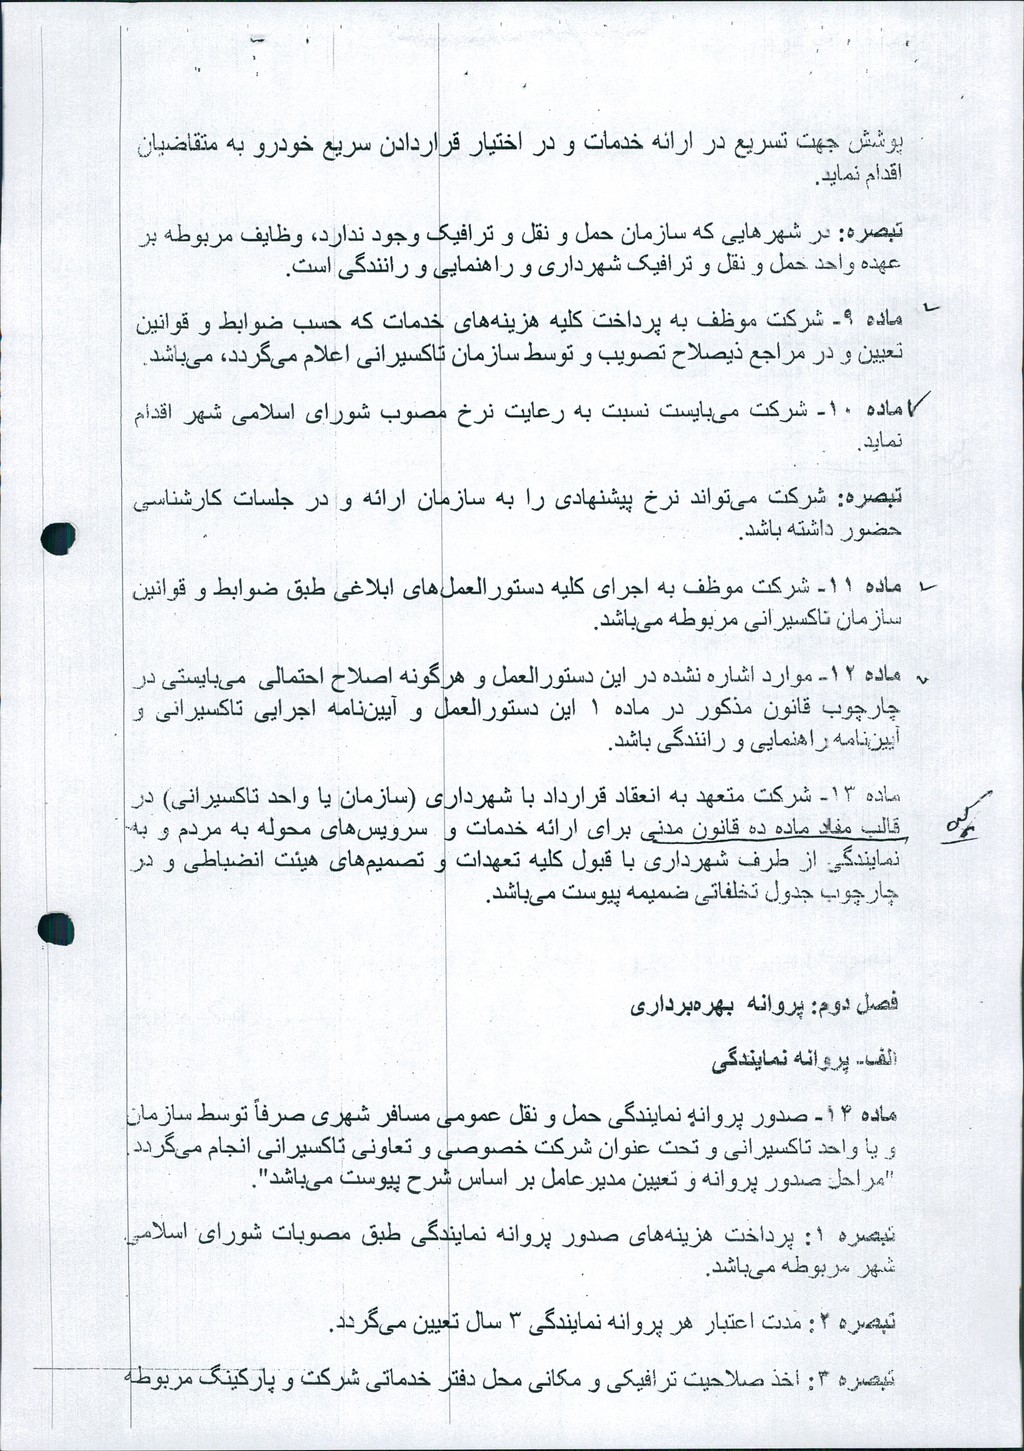 پوشش جهت تسریع در ارائه خدمات و در اختیار قراردادن سریع خودرو به متقاضیان
اقدام نماید.
تبصره: در شهرهایی که سازمان حمل و نقل و ترافیک وجود ندارد، وظایف مربوطه بر
عهده واحد حمل و نقل و ترافیک شهرداری و راهنمایی و رانندگی است.
ماده ۹- شرکت موظف به پرداخت کلیه هزینه‌های خدمات که حسب ضوابط و قوانین
تعیین و در مراجع ذیصلاح تصویب و توسط سازمان تاکسیرانی اعلام می‌گردد، می‌باشد.
ماده ۱۰- شرکت می‌بایست نسبت به رعایت نرخ مصوب شورای اسلامی شهر اقدام
نماید.
تبصره: شرکت می‌تواند نرخ پیشنهادی را به سازمان ارائه و در جلسات کارشناسی
حضور داشته باشد.
ماده ۱۱- شرکت موظف به اجرای کلیه دستورالعمل‌های ابلاغی طبق ضوابط و قوانین
سازمان تاکسیرانی مربوطه می‌باشد.
ماده ۱۲- موارد اشاره نشده در این دستورالعمل و هرگونه اصلاح احتمالی می‌بایستی در
چارچوب قانون مذکور در ماده ۱ این دستورالعمل و آیین‌نامه اجرایی تاکسیرانی و
آیین‌نامه راهنمایی و رانندگی باشد.
ماده ۱۳- شرکت متعهد به انعقاد قرارداد با شهرداری (سازمان یا واحد تاکسیرانی) در
قالب مفاد ماده ده قانون مدنی برای ارائه خدمات و سرویس‌های محوله به مردم و به
نمایندگی از طرف شهرداری با قبول کلیه تعهدات و تصمیم‌های هیئت انضباطی و در
چارچوب جدول تخلفاتی ضمیمه پیوست می‌باشد.
فصل دوم: پروانه بهره‌برداری
الف- پروانه نمایندگی
ماده ۱۴- صدور پروانه نمایندگی حمل و نقل عمومی مسافر شهری صرفاً توسط سازمان
و یا واحد تاکسیرانی و تحت عنوان شرکت خصوصی و تعاونی تاکسیرانی انجام می‌گردد.
"مراحل صدور پروانه و تعیین مدیرعامل بر اساس شرح پیوست می‌باشد".
تبصره ۱: پرداخت هزینه‌های صدور پروانه نمایندگی طبق مصوبات شورای اسلامی
شهر مربوطه می‌باشد.
تبصره ۲: مدت اعتبار هر پروانه نمایندگی ۳ سال تعیین می‌گردد.
تبصره ۳: اخذ صلاحیت ترافیکی و مکانی محل دفتر خدماتی شرکت و پارکینگ مربوطه